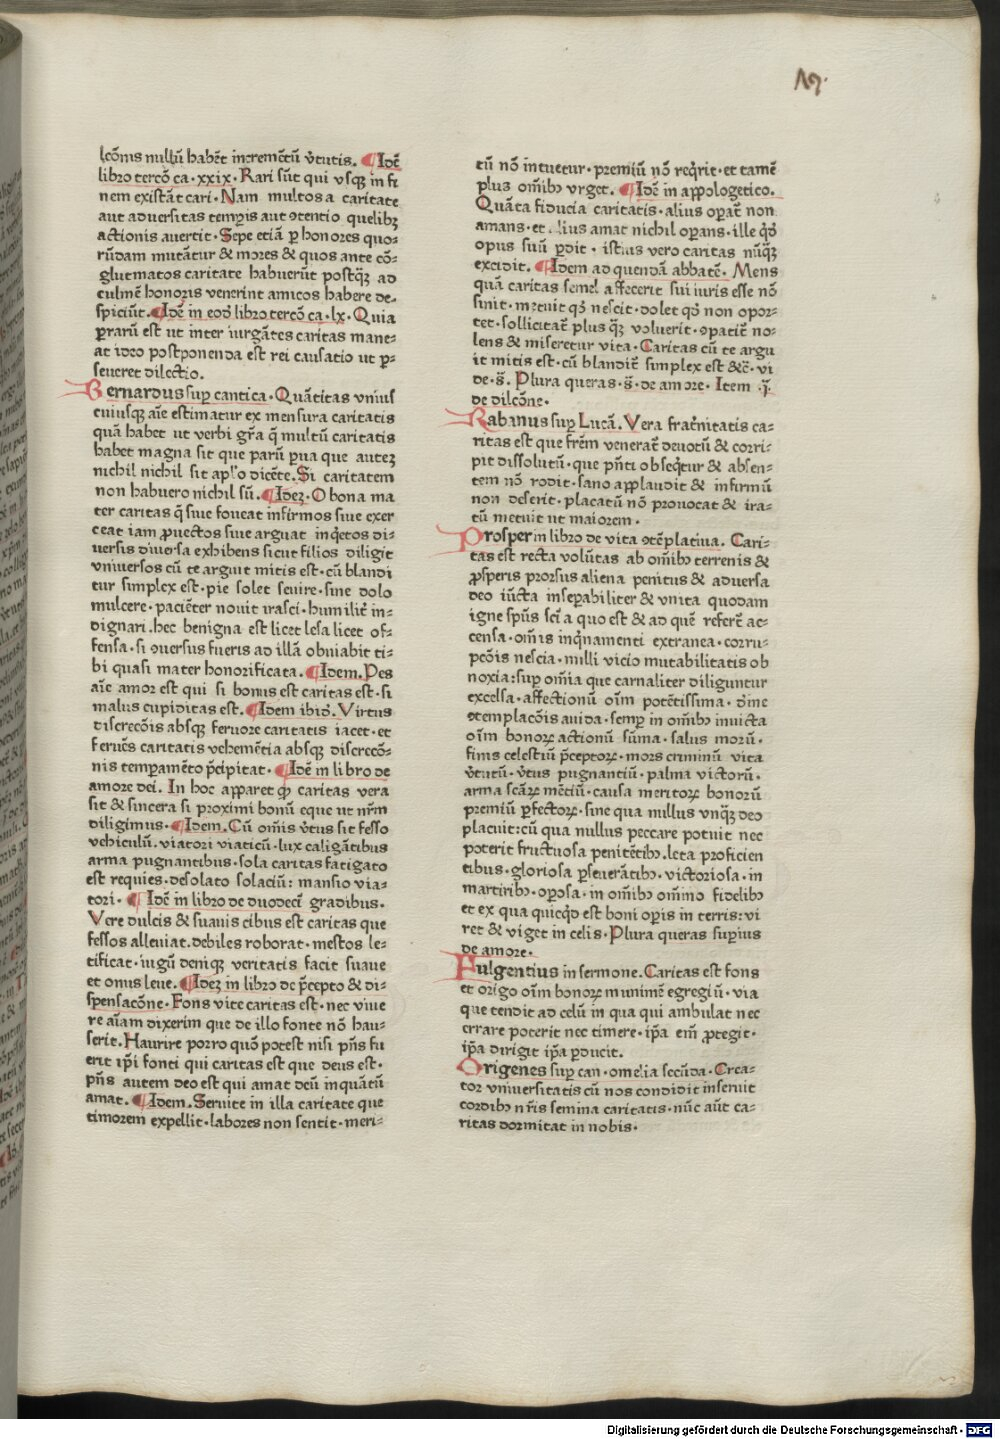 17.
lcōnis nullū habēt incremētū v̄tutis. ¶ Idē
libro terco̅ ca · xxix · Rari sūt qui vsq̨ in fi
nem existāt cari · Nam multos a caritate
aut aduersitas tempis aut ꝯtentio quelibꝫ
actionis auertit · Sepe etiā ꝑ honores quo⸗
rūdam mutātur & mores & quos ante cō⸗
glutinatos caritate habuerūt postq̄ꝫ ad
culmē honoris venerint amicos habere de⸗
spiciūt. ¶ Idē in eodē libro tercō ca · lx · Quia
ꝑrarū est ut inter iurgātes caritas mane⸗
at ideo postponenda est rei causatio ut ꝑ⸗
seueret dilectio.
Bernardus suꝑ cantica · Quātitas vniuſ
cuiusq̨ aīe estimatur ex mensura caritatis
quā habet ut verbi gr̄a q̄ multū caritatis
habet magna sit que parū ꝑua que auteꝫ
nichil nichil sit aplo dicēte. Si caritatem
non habuero nichil sū. ¶ Ideꝫ · O bona ma
ter caritas q̄ siue foueat infirmos siue exer
ceat iam ꝓuectos siue arguat inq̄etos di⸗
uersis diuersa exhibens sicut filios diligit
vniuersos cū te arguit mitis est · cū blandi
tur simplex est · pie solet seuire · sine dolo
mulcere · paciēter nouit irasci · humilit̄ in⸗
dignari. hec benigna est licet lesa licet of⸗
fensa · si ꝯuersus fueris ad illā obuiabit ti⸗
bi quasi mater honorificata. ¶ Idem. Pes
aīe amor est qui si bonus est caritas est · si
malus cupiditas est. ¶ Idem ibid̄. Virtus
discrecōis absq̨ feruore caritatis iacet · et
feruēs caritatis vehemētia absq̨ discrecō⸗
nis temꝑamēto p̄cipitat. ¶ Idē in libro de
amore dei. In hoc apparet qꝫ caritas vera
sit & sincera si proximi bonū eque ut nr̄m
diligimus. ¶ Idem. Cū om̄is v̄tus sit fesso
vehiculū. viatori viaticū. lux caligātibus
arma pugnantibus · sola caritas fatigato
est requies · desolato solaciū : mansio via⸗
tori · ¶ Idē in libro de duodecī gradibus.
Vere dulcis & suauis cibus est caritas que
fessos alleuiat. debiles roborat · mestos le⸗
tificat · iugū denique veritatis facit suaue
et onus leue. ¶ Ideꝫ in libro de p̄cepto & di⸗
spensacōne · Fons vite caritas est · nec viue
re aīam dixerim que de illo fonte nō hau⸗
serit. Haurire porro quō potest nisi p̄ns fu
erit ip̄i fonti qui caritas est que deus est ·
p̄ns autem deo est qui amat deū inquātū
amat. ¶ Idem. Seruite in illa caritate que
timorem expellit · labores non sentit · meri⸗
tū nō intuetur · premiū nō req̄rit · et tamē
plus om̄ibꝫ vrget. ¶ Idē in appologetico.
Quāta fiducia caritatis · alius oꝑat̄ non
amans · et alius amat nichil oꝑans · ille qd̄
opus suū ꝑdit · istius vero caritas nūq̄ꝫ
excidit. ¶ Idem ad quendā abbatē · Mens
quā caritas semel affecerit sui iuris esse nō
sinit · metuit qd̄ nescit · dolet qd̄ non opor⸗
tet · sollicitat̄ plus q̄ꝫ voluerit · ꝯpatit̄ no⸗
lens & miseretur vita · Caritas cū te argu
it mitis est · cū blandit̄ simplex est &c̄ · vi
de · s̄. Plura queras · s̄ · de amore · Item · ī.
de dilcōne.
Rabanus suꝑ Lucā. Vera frat̄nitatis ca⸗
ritas est que frēm venerat̄ deuotū & corri⸗
pit dissolutū · que p̄nti obseq̄tur & absen⸗
tem nō rodit · sano applaudit & infirmū
non deserit · placatū nō prouocat & ira⸗
tū metuit ut maiorem.
Prosper in libro de vita ꝯtēplatiua. Cari⸗
tas est recta volūtas ab om̄ibꝫ terrenis &
ꝓsperis prorsus aliena penitus & aduersa
deo iūcta inseꝑabiliter & vnita quodam
igne sp̄us sc̄i a quo est & ad quē refert̄ ac⸗
censa · om̄is inq̄namenti extranea · corru⸗
pcōis nescia · nulli vicio mutabilitatis ob
noxia : suꝑ om̄ia que carnaliter diliguntur
excelsa · affectionū oīm potētissima · diīne
ꝯtemplacōis auida · semꝑ in om̄ibꝫ inuicta
oīm bonoꝝ actionū sūma · salus morū ·
finis celestiū p̄ceptoꝝ · mors criminū vita
v̄tutū · v̄tus pugnantiū · palma victorū ·
arma sc̄aꝝ mētiū · causa meritoꝝ bonorū
premiū ꝑfectoꝝ · sine qua nullus vnq̄ꝫ deo
placuit : cū qua nullus peccare potuit nec
poterit fructuosa penitētibꝫ. leta proficien
tibus · gloriosa ꝑseuerātibꝫ · victoriosa · in
martiribꝫ · oꝑosa · in om̄ibꝫ om̄ino fidelibꝫ
et ex qua quicq̄d est boni oꝑis in terris : vi
ret & viget in celis · Plura queras suꝑius
de amore.
Fulgentius in sermone. Caritas est fons
et origo oīm bonoꝝ munimē egregiū · via
que tendit ad celū in qua qui ambulat nec
errare poterit nec timere · ip̄a em̄ ꝓtegit ·
ip̄a dirigit ip̄a ꝑducit.
Origenes suꝑ can · omelia secūda · Crea⸗
tor vniuersitatis cū nos condidit inseruit
cordibꝫ nr̄is semina caritatis · nūc aūt ca⸗
ritas dormitat in nobis ·
Digitalisierung gefördert durch die Deutsche Forschungsgemeinschaft - DFG